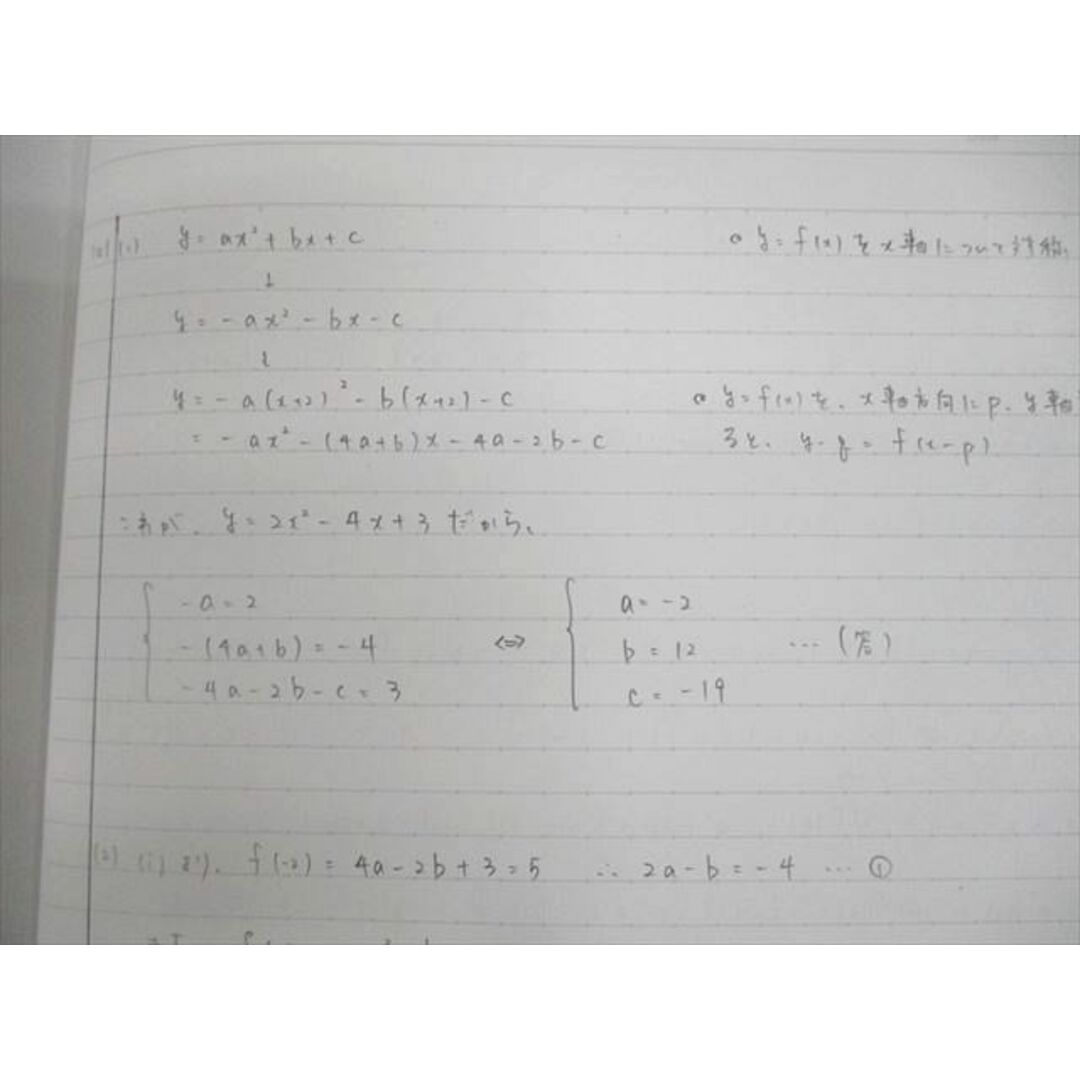 y = ax² + bx + c
○ y = f(x) を x軸について対称
↓
y = -ax² - bx - c
↓
y = -a(x+2)² - b(x+2) - c
○ y = f(x) を、x軸方向に p、y軸
= -ax² - (4a+b)x - 4a - 2b - c
ると、y-q = f(x-p)
これが、y = 2x² - 4x + 3 だから、
-a = 2
a = -2
-(4a+b) = -4
⇔
b = 12 … (答)
-4a - 2b - c = 3
c = -19
(2) (i)より、f(-2) = 4a - 2b + 3 = 5 ∴ 2a - b = -4 … ①